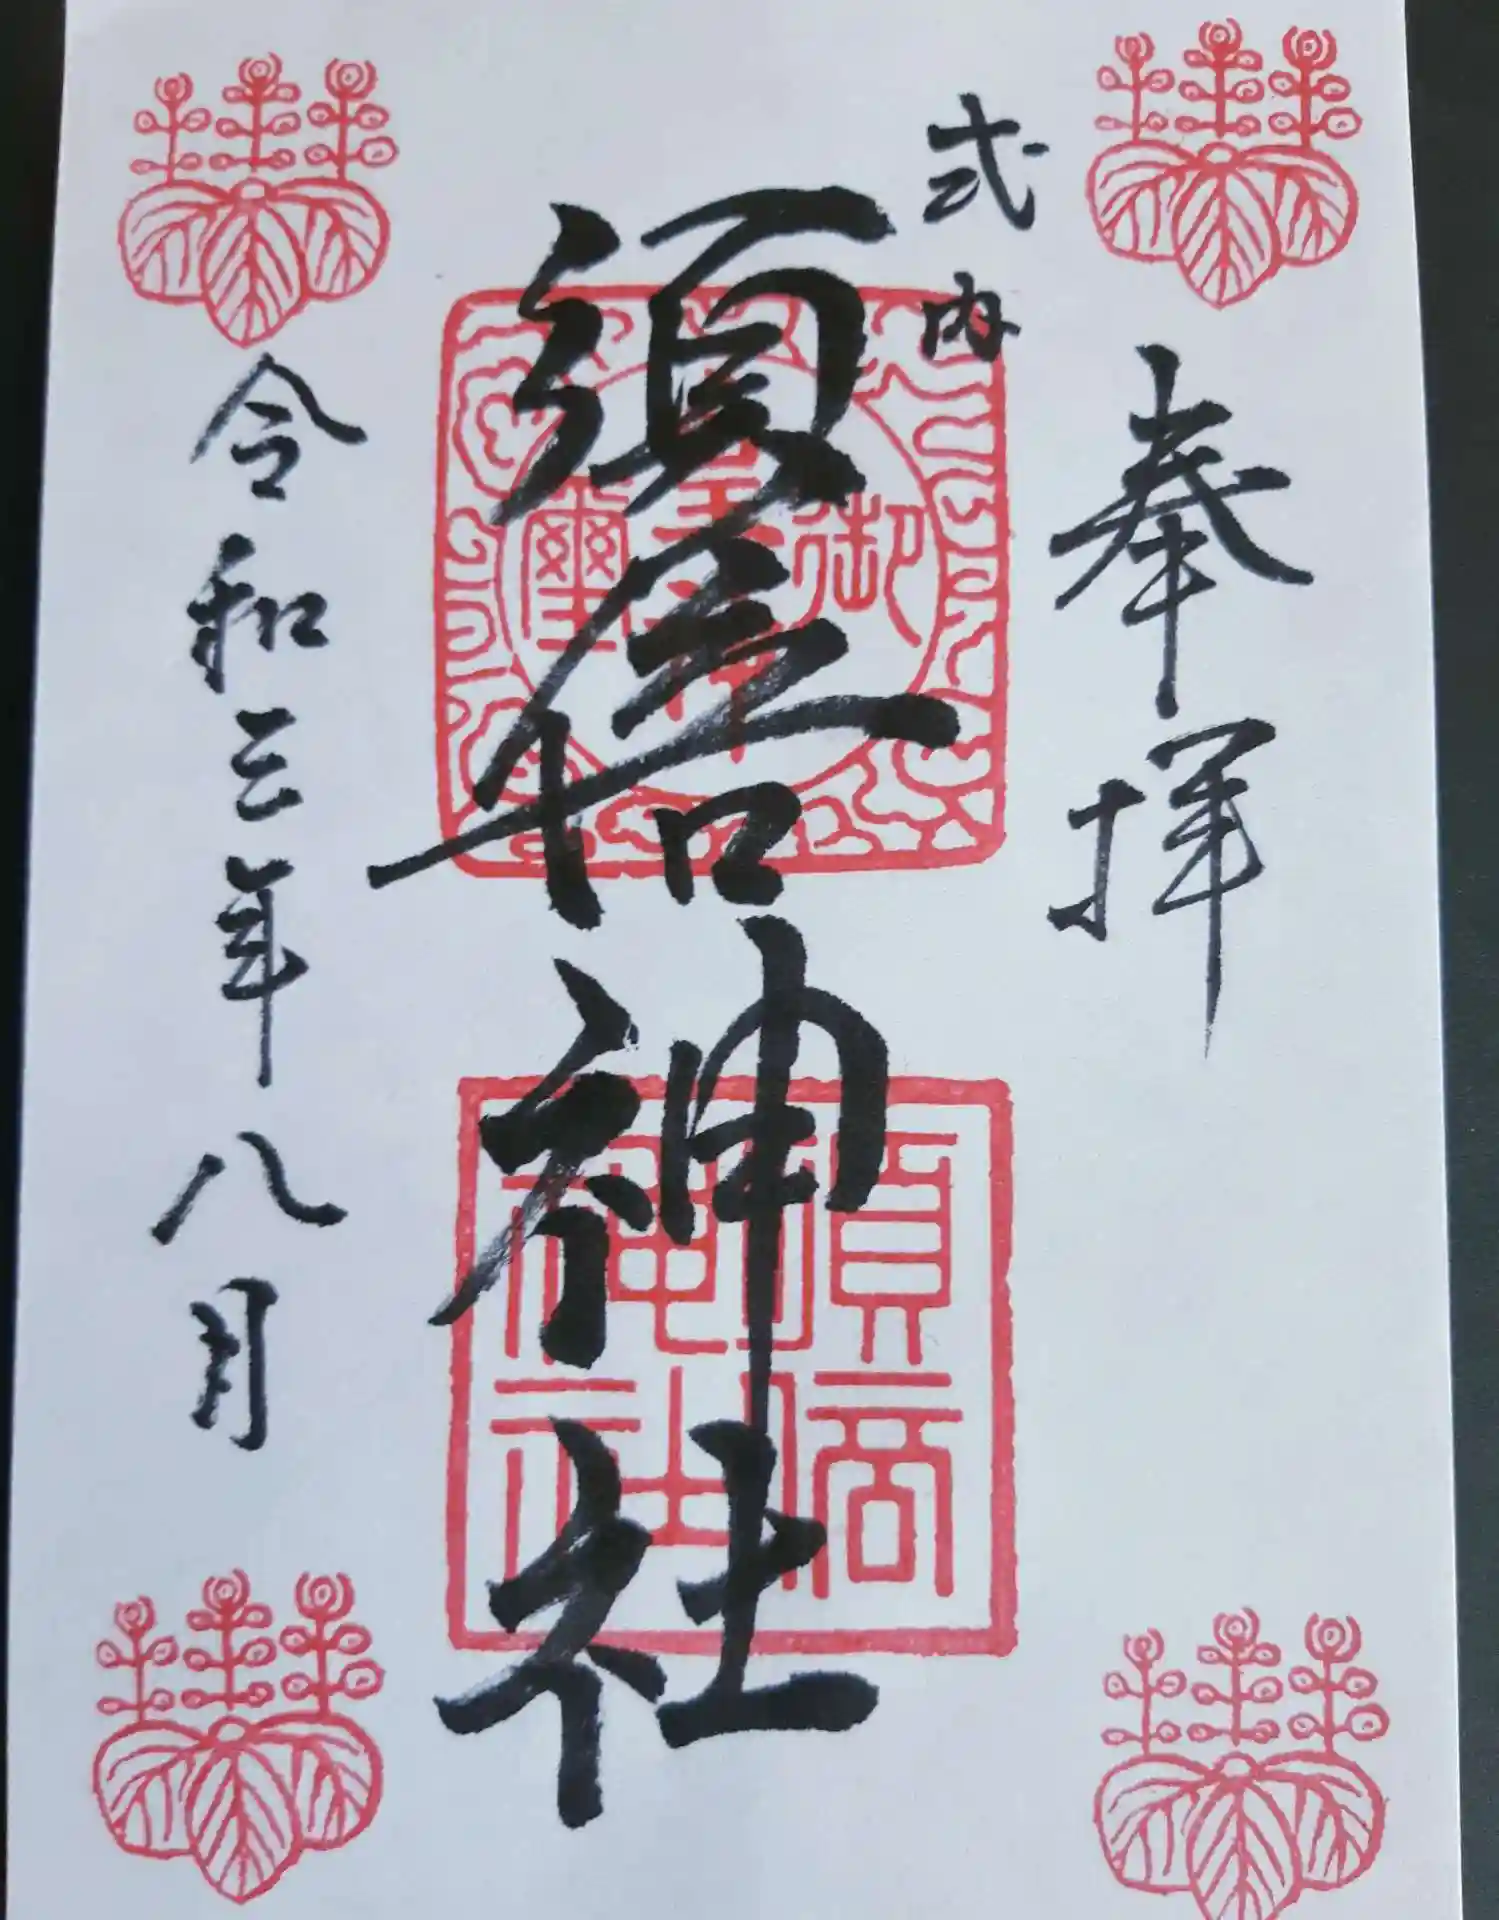 奉拝
式内
須倍神社
令和三年八月
須倍神社